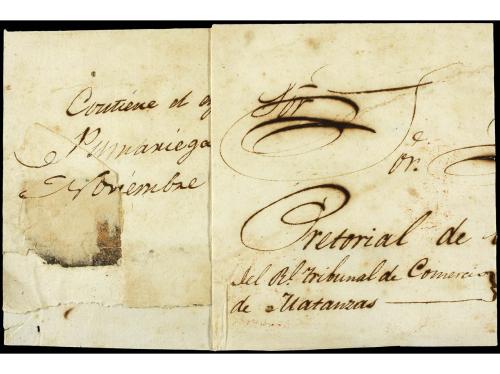 Contiene el
Pumariega
Noviembre
Sõr
Te
or.
Pretorial de
del Rl. Tribunal de Comercio
de Matanzas